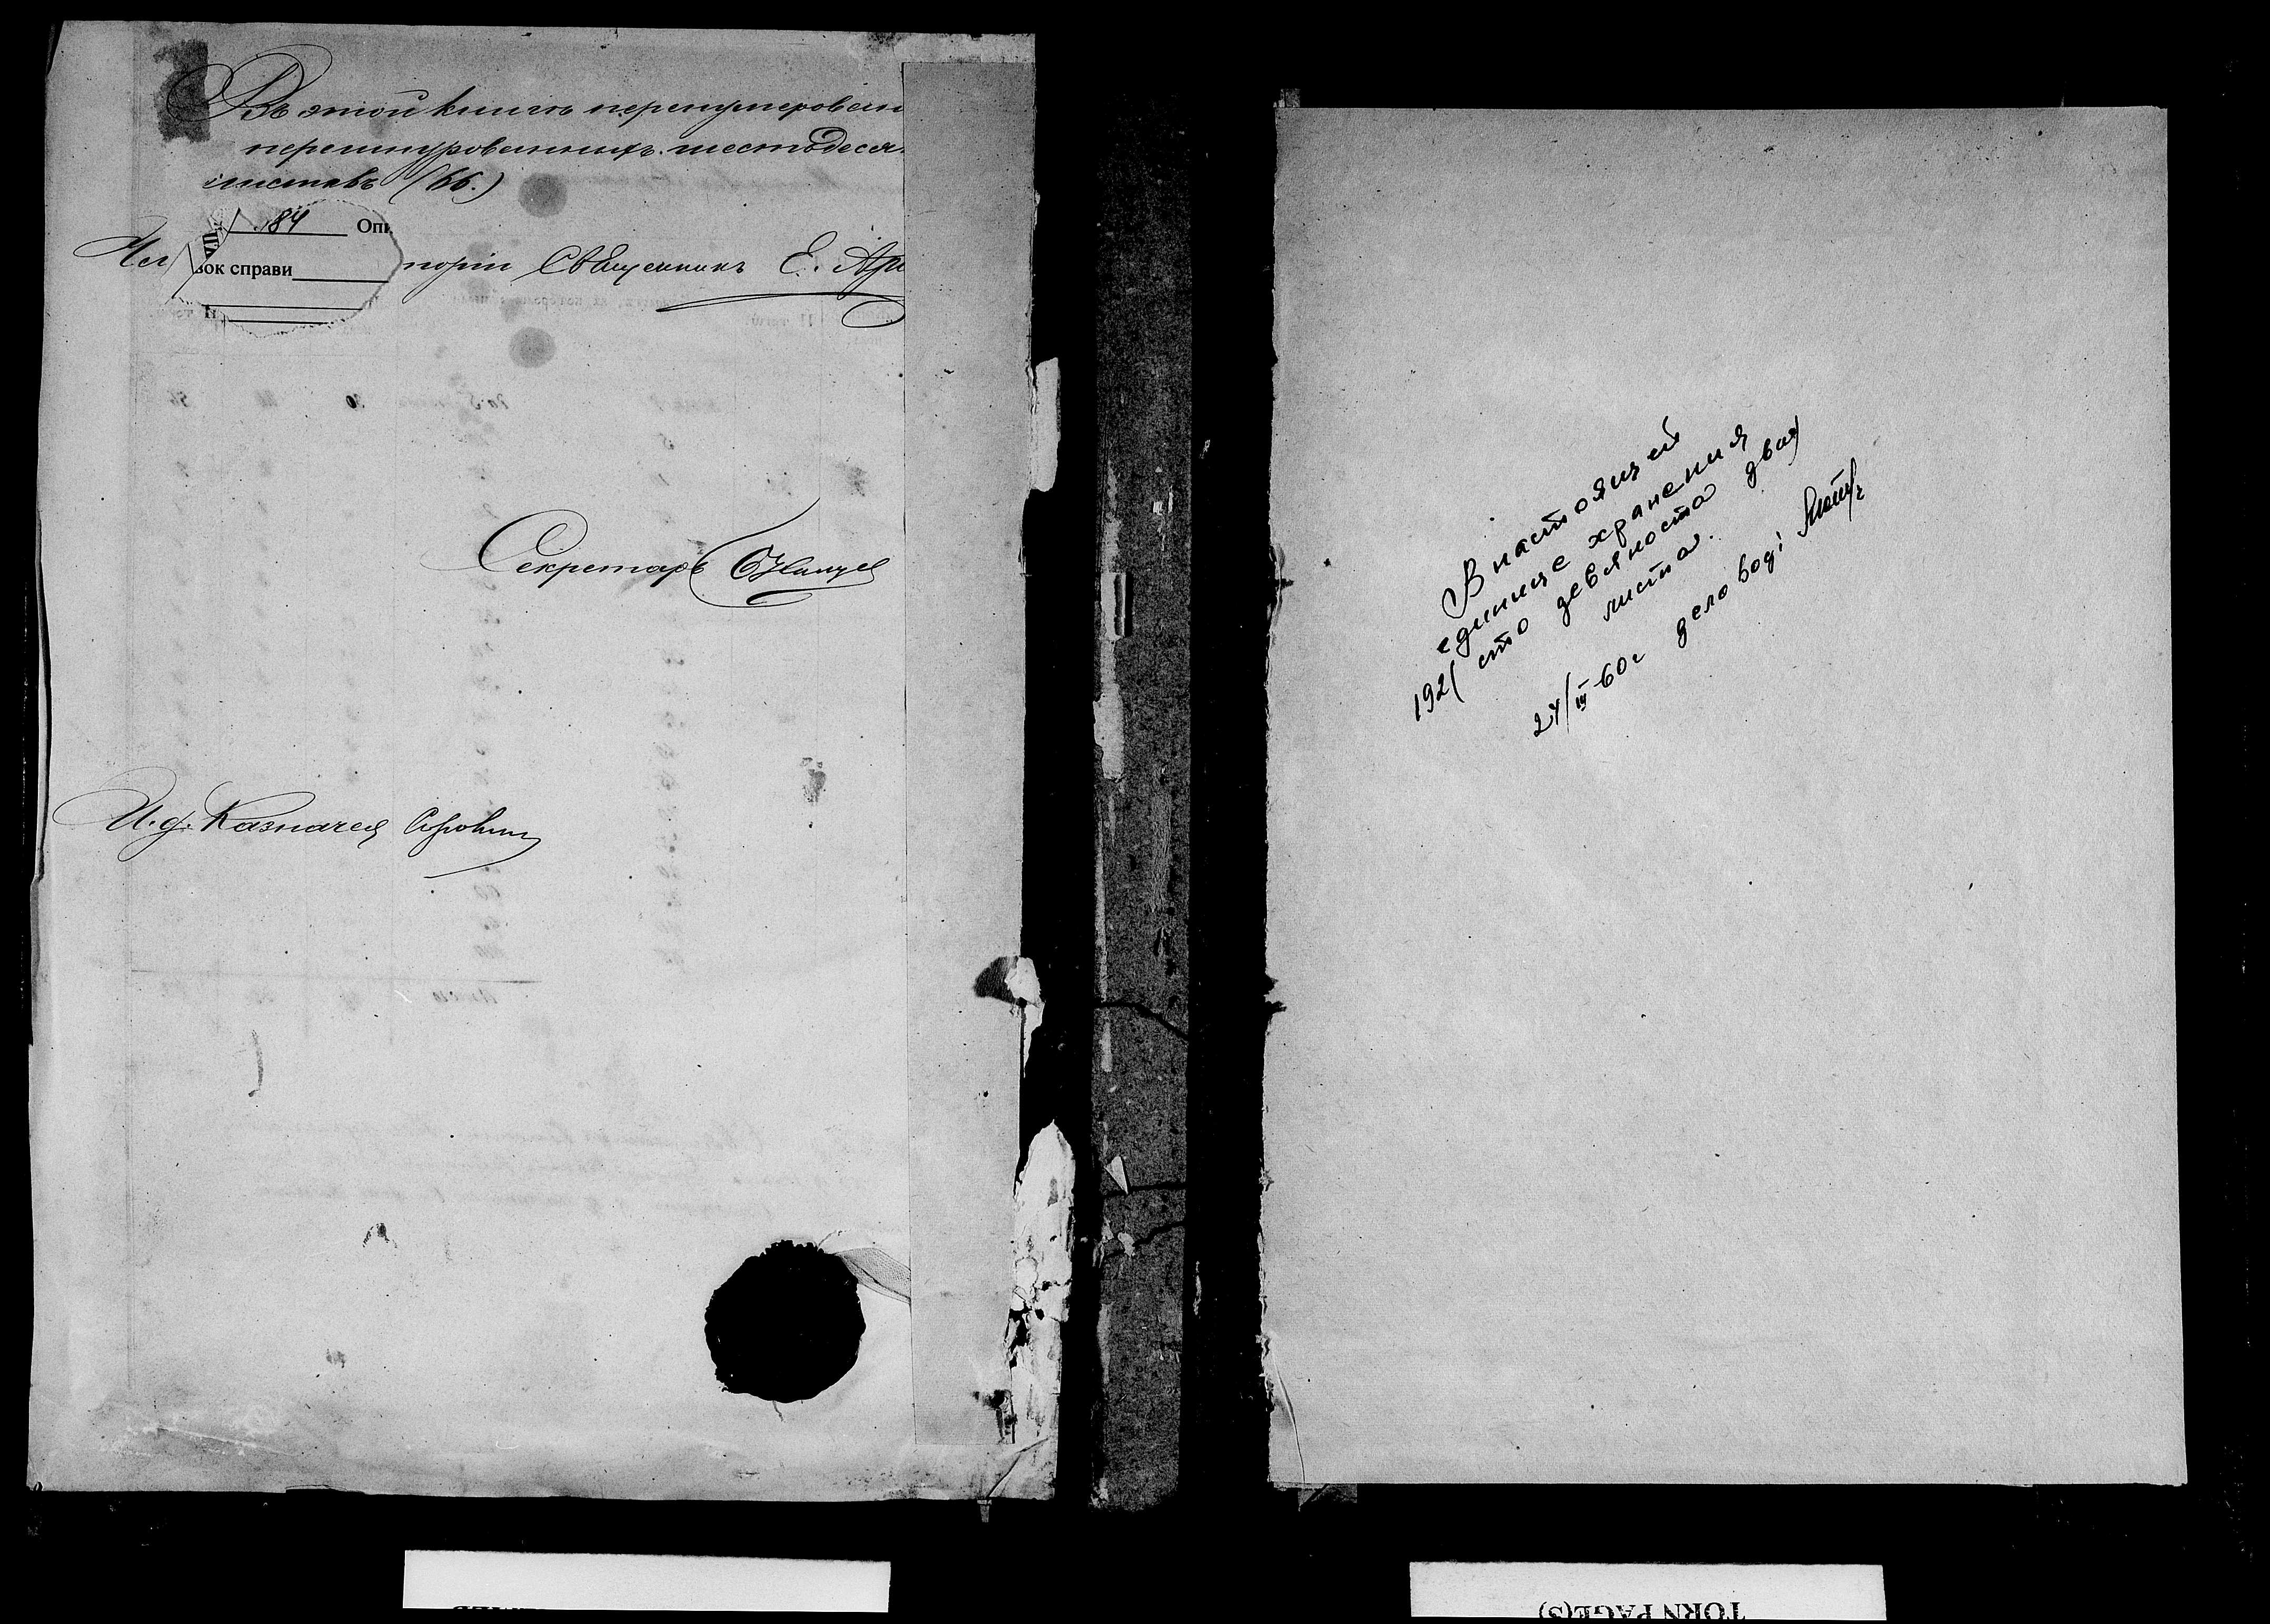 Въ этой книгѣ перенумерован
перешнурованныхъ шестьдеся
листовъ (66.)
184 Опи
зок справи
Чл торіи Священникъ Е.
Секретарь
И.д. Казначея
В настоящей
единице хранения
192 (сто девяноста два)
листа.
24/III-60г деловод:
TORN PAGE(S)